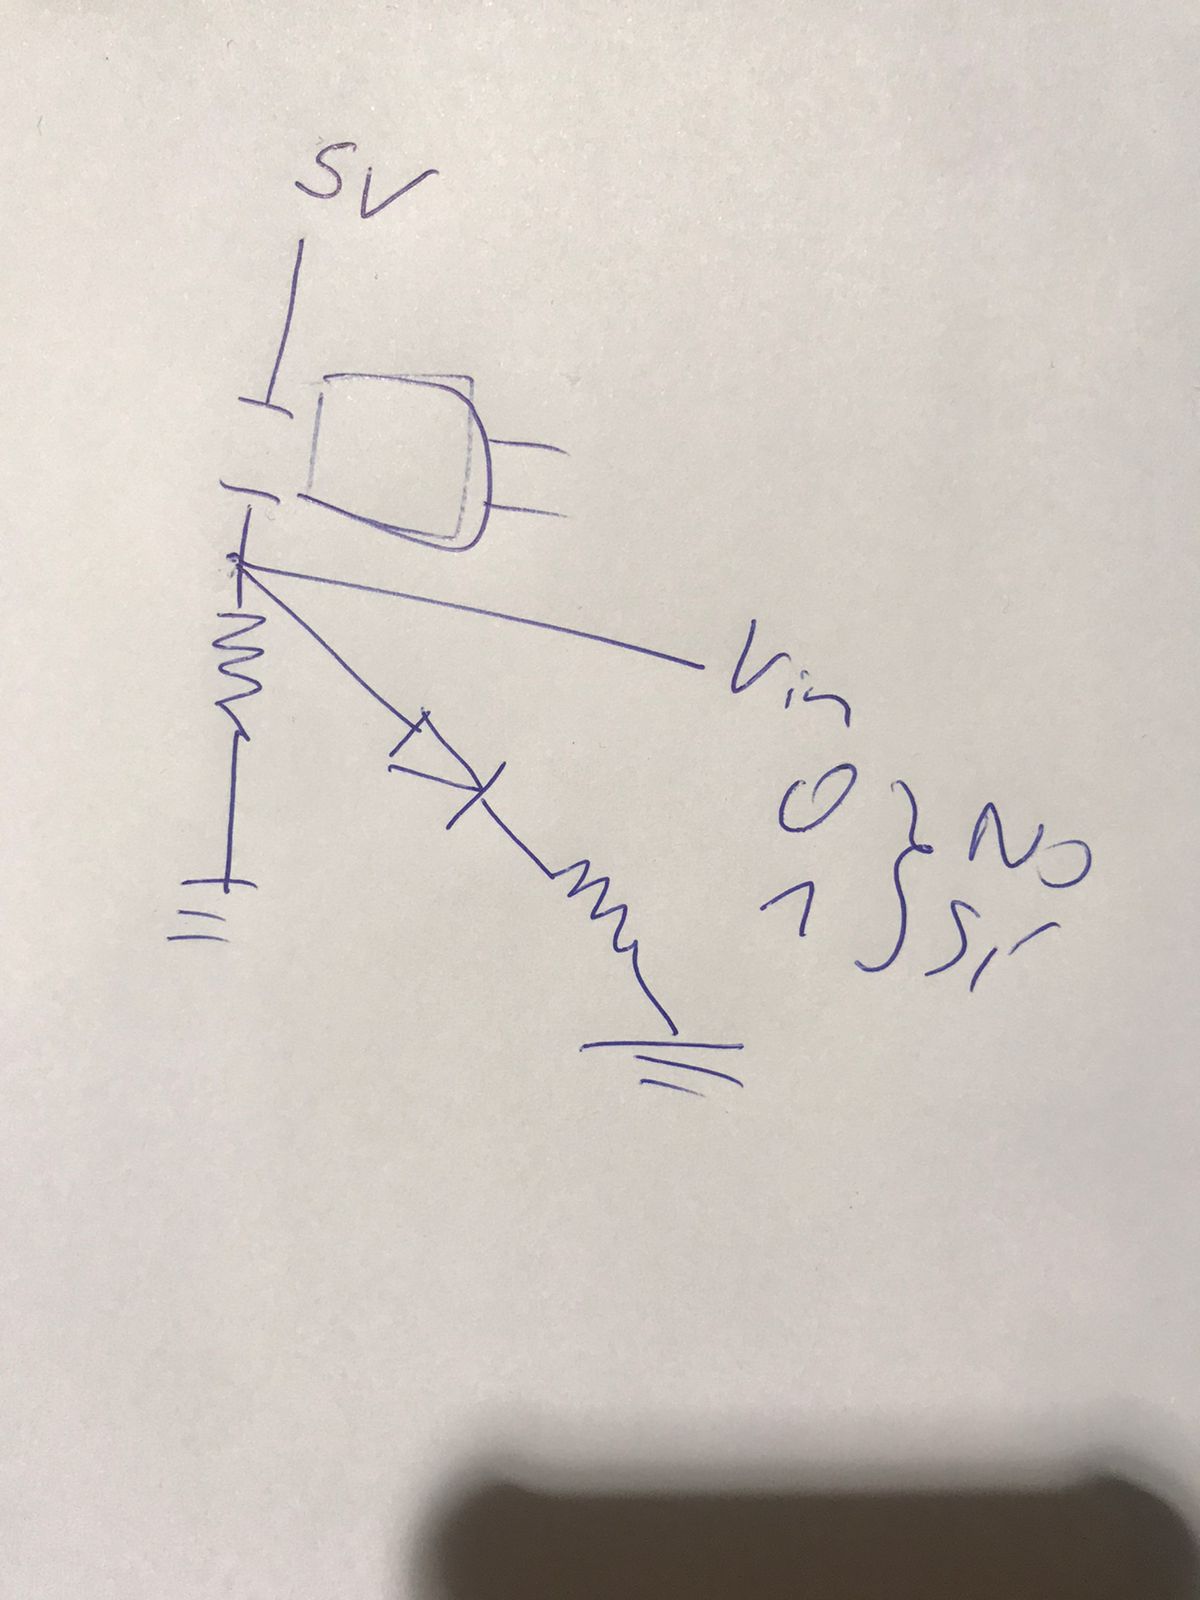 5V
Vin
0 } NO
1 } Sí